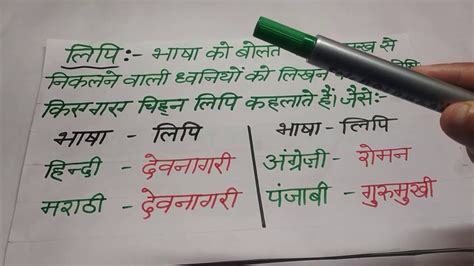 लिपि :- भाषा को बोलते से
निकलने वाली ध्वनियों को लिखने
चिह्न लिपि कहलाते हैं। जैसे:-
भाषा - लिपि भाषा - लिपि
हिन्दी - देवनागरी अंग्रेज़ी - रोमन
मराठी - देवनागरी पंजाबी - गुरुमुखी